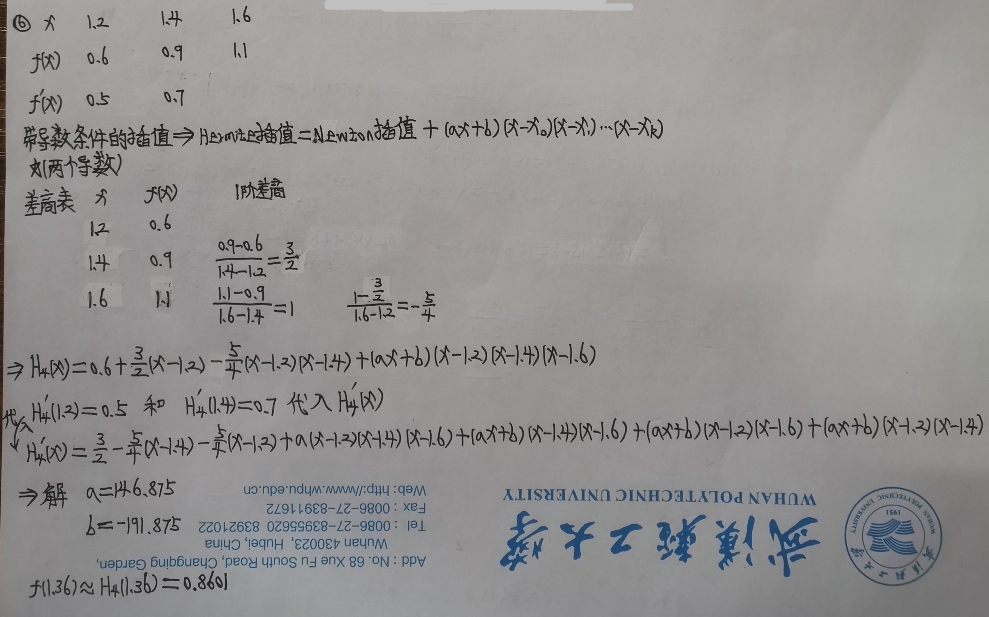 ⑥ x 1.2 1.4 1.6
f(x) 0.6 0.9 1.1
f'(x) 0.5 0.7
带导数条件的插值⇒Hermite插值=Newton插值+(ax+b)(x-x₀)(x-x₁)…(x-xₖ)
(两个导数)
差商表 x f(x) 1阶差商
1.2 0.6
1.4 0.9 (0.9-0.6)/(1.4-1.2)=3/2
1.6 1.1 (1.1-0.9)/(1.6-1.4)=1 (1-3/2)/(1.6-1.2)=-5/4
⇒H₄(x)=0.6+3/2(x-1.2)-5/4(x-1.2)(x-1.4)+(ax+b)(x-1.2)(x-1.4)(x-1.6)
代入 H₄'(1.2)=0.5 和 H₄'(1.4)=0.7 代入H₄'(x)
H₄'(x)=3/2-5/4(x-1.4)-5/4(x-1.2)+a(x-1.2)(x-1.4)(x-1.6)+(ax+b)(x-1.4)(x-1.6)+(ax+b)(x-1.2)(x-1.6)+(ax+b)(x-1.2)(x-1.4)
⇒解 a=146.875
b=-191.875
f(1.36)≈H₄(1.36)=0.8601
武汉轻工大学
WUHAN POLYTECHNIC UNIVERSITY
Add : No. 68 Xue Fu South Road, Changqing Garden,
Wuhan 430023, Hubei, China
Tel : 0086-27-83955620 83921022
Fax : 0086-27-83911672
Web: http://www.whpu.edu.cn
WUHAN POLYTECHNIC UNIVERSITY
1951
武汉轻工大学